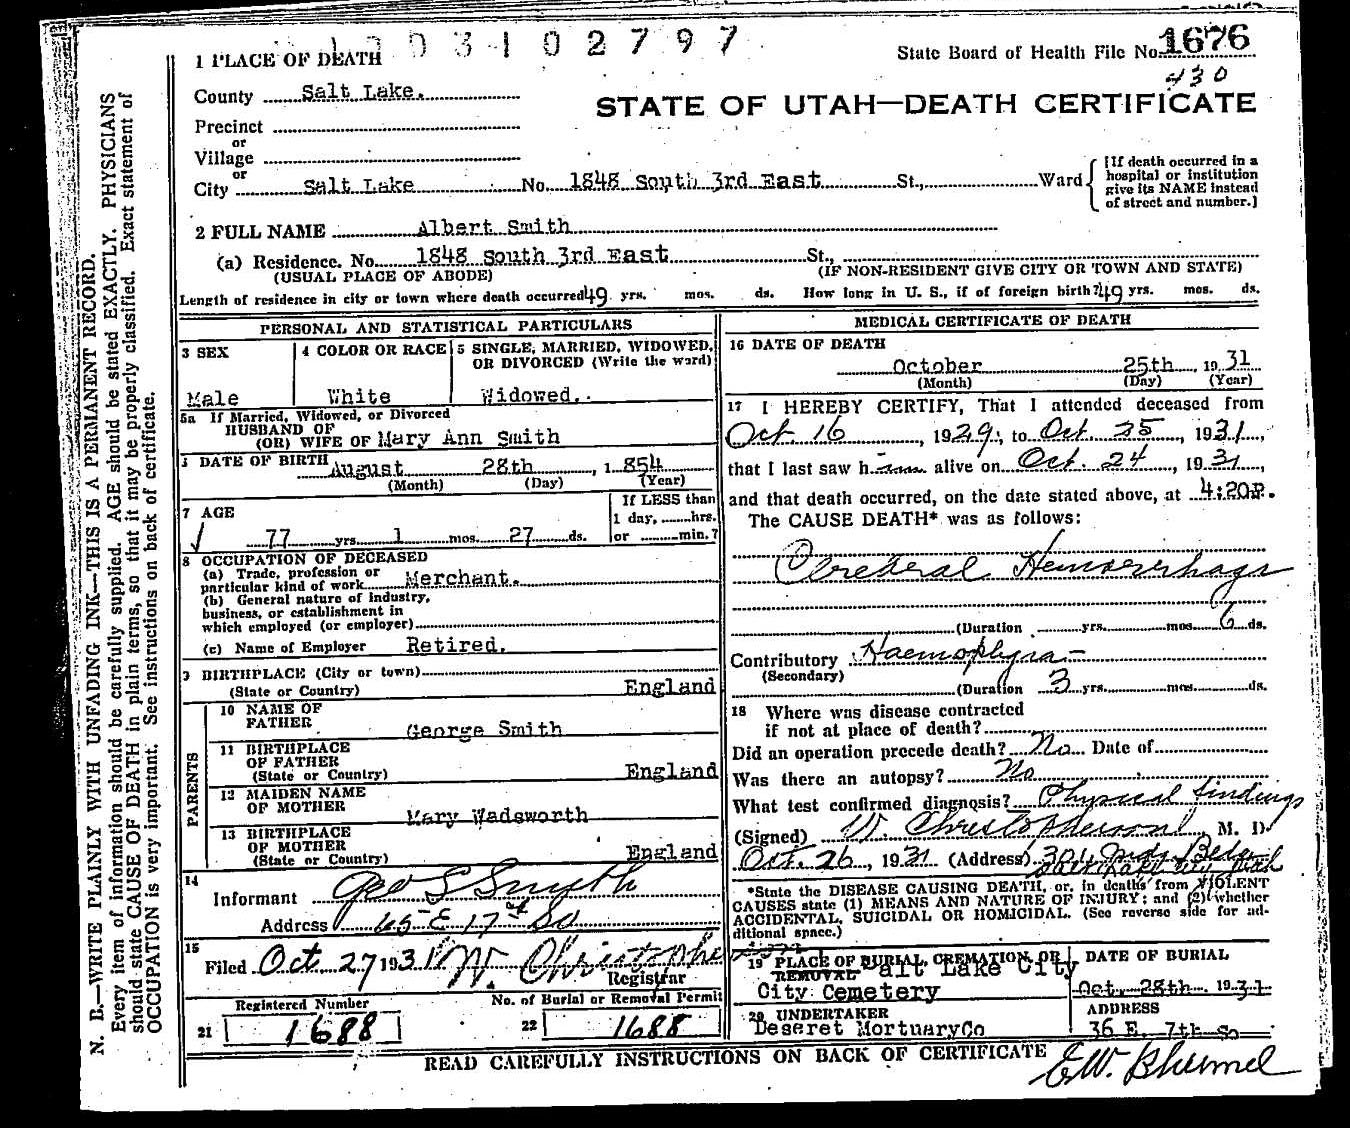 1003102797
State Board of Health File No. 1676
430
1 PLACE OF DEATH
County Salt Lake.
STATE OF UTAH—DEATH CERTIFICATE
Precinct
or
Village
or
City Salt Lake No. 1848 South 3rd East St., Ward
[If death occurred in a
hospital or institution
give its NAME instead
of street and number.]
2 FULL NAME Albert Smith
(a) Residence. No. 1848 South 3rd East St.,
(USUAL PLACE OF ABODE) (IF NON-RESIDENT GIVE CITY OR TOWN AND STATE)
Length of residence in city or town where death occurred 49 yrs. mos. ds. How long in U. S., if of foreign birth? 49 yrs. mos. ds.
PERSONAL AND STATISTICAL PARTICULARS
3 SEX 4 COLOR OR RACE 5 SINGLE, MARRIED, WIDOWED,
OR DIVORCED (Write the word)
Male White Widowed.
5a If Married, Widowed, or Divorced
HUSBAND OF
(OR) WIFE OF Mary Ann Smith
DATE OF BIRTH August 28th, 1854
(Month) (Day) (Year)
7 AGE If LESS than
1 day, hrs.
77 yrs. 1 mos. 27 ds. or min.?
8 OCCUPATION OF DECEASED
(a) Trade, profession or
particular kind of work Merchant.
(b) General nature of industry,
business, or establishment in
which employed (or employer)
(c) Name of Employer Retired.
9 BIRTHPLACE (City or town)
(State or Country) England
PARENTS
10 NAME OF
FATHER George Smith
11 BIRTHPLACE
OF FATHER
(State or Country) England
12 MAIDEN NAME
OF MOTHER Mary Wadsworth
13 BIRTHPLACE
OF MOTHER
(State or Country) England
14
Informant Geo S Smyth
Address 65 E 17th So
15
Filed Oct 27 1931 W. Christophe
Registrar
Registered Number No. of Burial or Removal Permit
21 1688 22 1688
MEDICAL CERTIFICATE OF DEATH
16 DATE OF DEATH
October 25th, 1931
(Month) (Day) (Year)
17 I HEREBY CERTIFY, That I attended deceased from
Oct 16, 1929, to Oct. 25, 1931,
that I last saw him alive on Oct. 24, 1931,
and that death occurred, on the date stated above, at 4:20P.
The CAUSE DEATH* was as follows:
Cerebral Hemorrhage
(Duration yrs. mos 6 ds.
Contributory Haemophyra-
(Secondary)
(Duration 3 yrs. mos. ds.
18 Where was disease contracted
if not at place of death?
Did an operation precede death? No Date of
Was there an autopsy? No
What test confirmed diagnosis? Physical findings
(Signed) W. Christopherson, M. D.
Oct. 26, 1931 (Address) 301 Bldg
Salt Lake City Utah
*State the DISEASE CAUSING DEATH, or, in deaths from VIOLENT
CAUSES state (1) MEANS AND NATURE OF INJURY; and (2) whether
ACCIDENTAL, SUICIDAL OR HOMICIDAL. (See reverse side for ad-
ditional space.)
19 PLACE OF BURIAL, CREMATION, OR DATE OF BURIAL
REMOVAL Salt Lake City
City Cemetery Oct. 28th. 1931
20 UNDERTAKER ADDRESS
Deseret Mortuary Co 36 E. 7th So
READ CAREFULLY INSTRUCTIONS ON BACK OF CERTIFICATE
N. B.—WRITE PLAINLY WITH UNFADING INK—THIS IS A PERMANENT RECORD.
Every item of information should be carefully supplied. AGE should be stated EXACTLY. PHYSICIANS
should state CAUSE OF DEATH in plain terms, so that it may be properly classified. Exact statement of
OCCUPATION is very important. See instructions on back of certificate.